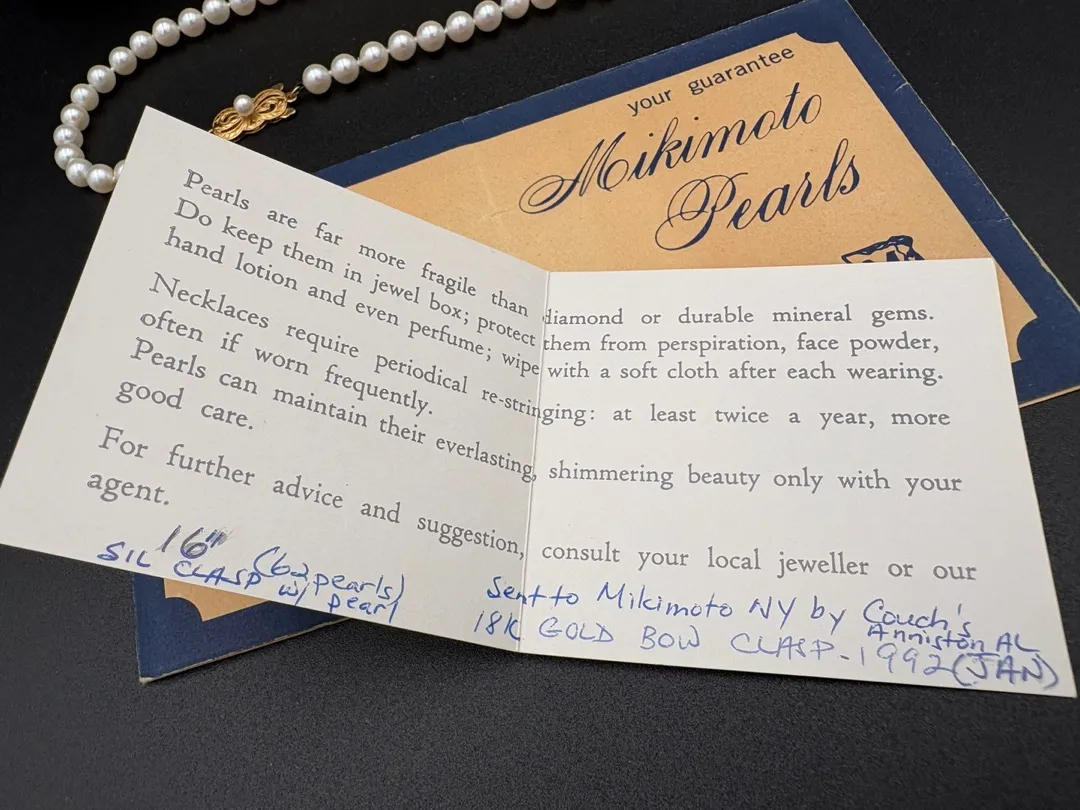 your guarantee
Mikimoto
Pearls
Pearls are far more fragile than diamond or durable mineral gems.
Do keep them in jewel box; protect them from perspiration, face powder,
hand lotion and even perfume; wipe with a soft cloth after each wearing.
Necklaces require periodical re-stringing: at least twice a year, more
often if worn frequently.
Pearls can maintain their everlasting, shimmering beauty only with your
good care.
For further advice and suggestion, consult your local jeweller or our
agent.
16" (62 pearls)
SIL CLASP w/ pearl
Sent to Mikimoto NY by Couch's
Anniston AL
18K GOLD BOW CLASP - 1992 (JAN)